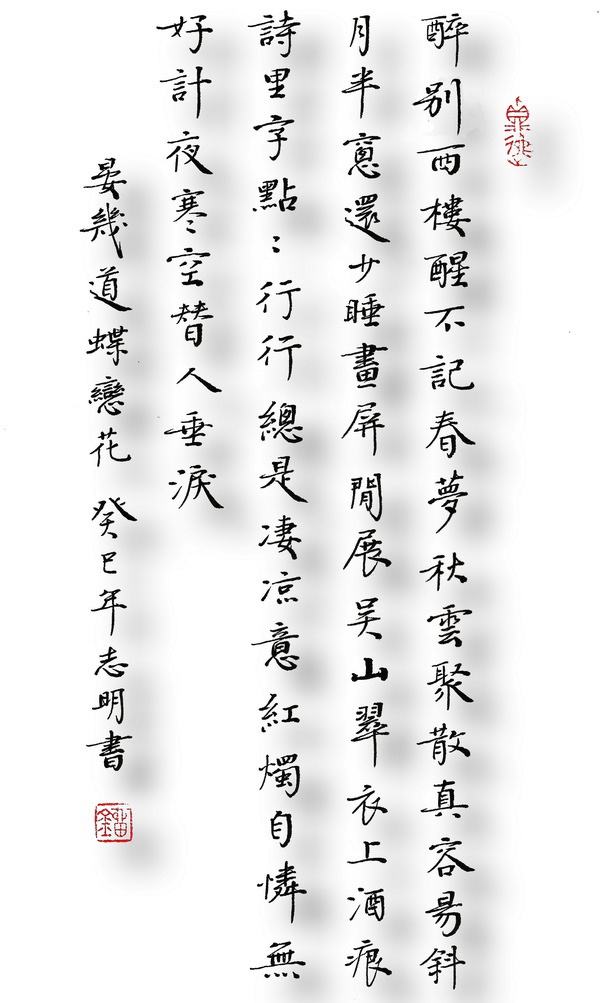 醉别西樓醒不記春夢秋雲聚散真容易斜
月半窻還少睡畫屏閒展吴山翠衣上酒痕
詩里字點〻行行總是淒涼意紅燭自憐無
好計夜寒空替人垂淚
晏幾道蝶戀花 癸巳年志明書